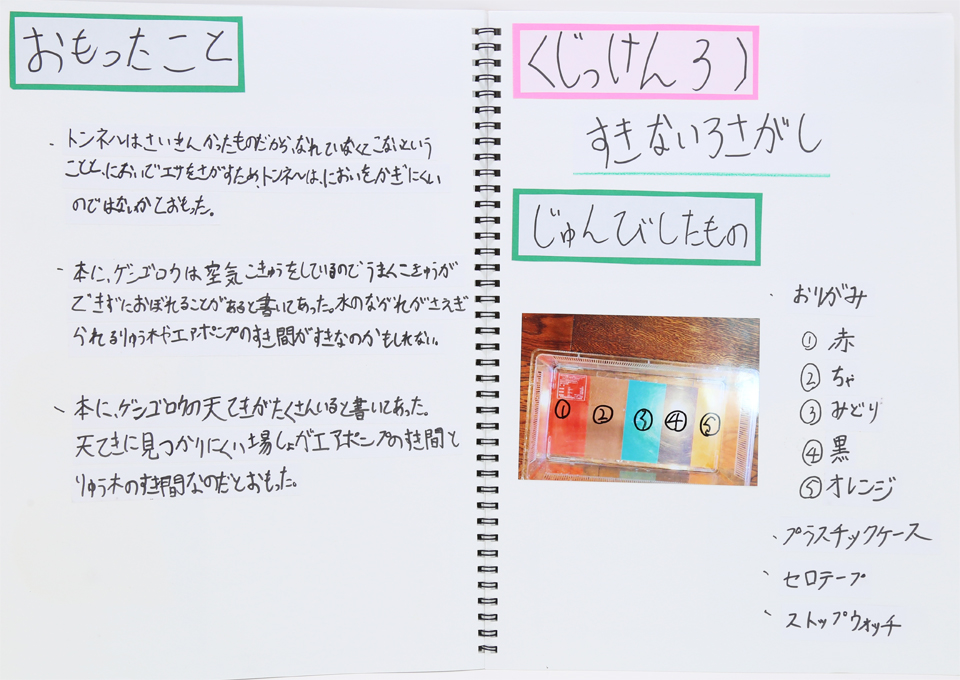 おもったこと
・トンネルはさいきんかったものだから、なれていなくてこないという
ことと、においでエサをさがすため、トンネルは、においをかぎにくい
のではないかとおもった。
・本に、ゲンゴロウは空気こきゅうをしているのでうまくこきゅうが
できずにおぼれることがあると書いてあった。水のながれがさえぎ
られるりゅう木やエアポンプのすき間がすきなのかもしれない。
・本に、ゲンゴロウの天てきがたくさんいると書いてあった。
天てきに見つかりにくい場しょがエアポンプのすき間と
りゅう木のすき間なのだとおもった。
〈じっけん3〉
すきないろさがし
じゅんびしたもの
・おりがみ
①赤
②ちゃ
③みどり
④黒
⑤オレンジ
① ② ③ ④ ⑤
・プラスチックケース
・セロテープ
・ストップウォッチ